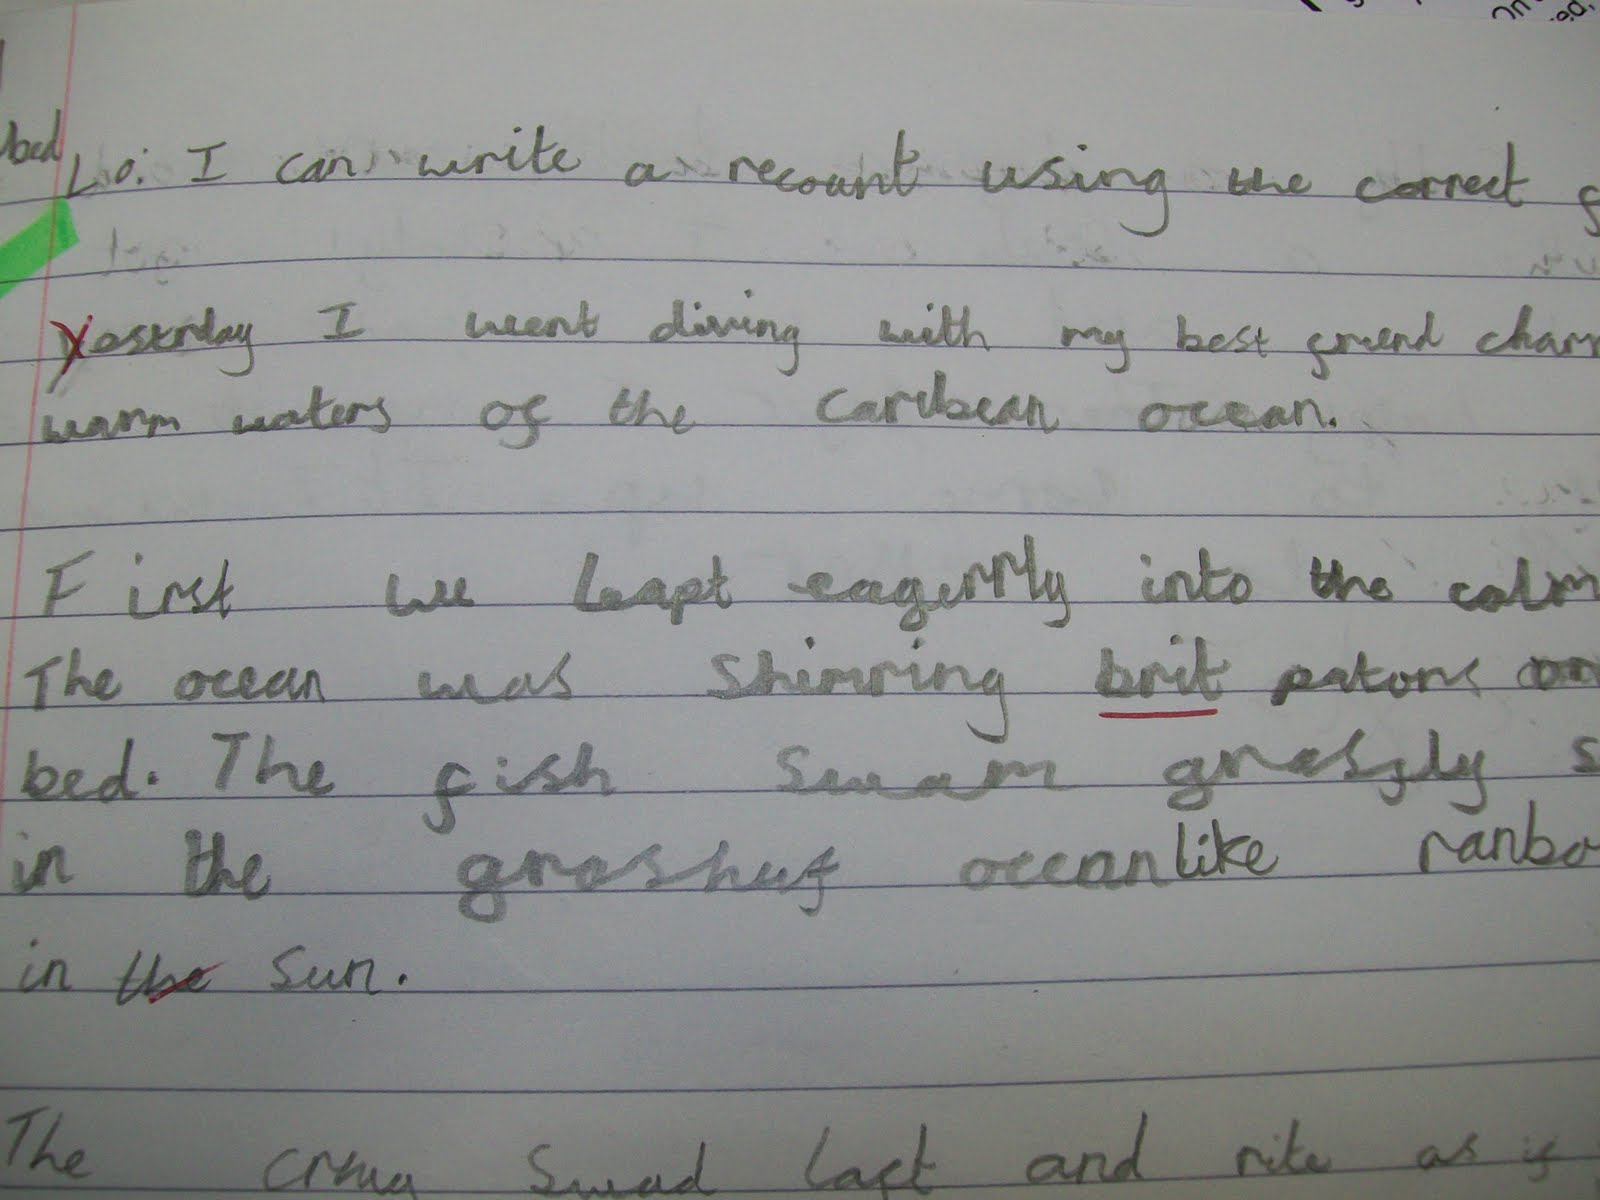 L.o: I can write a recount using the correct
Yesterday I went diving with my best friend
warm waters of the Caribbean ocean.
First we leapt eagerly into the calm
The ocean was shimring brit patons
bed. The fish swam graszly
in the grashuf ocean like ranbo
in the sun.
The swad laft and rite as if